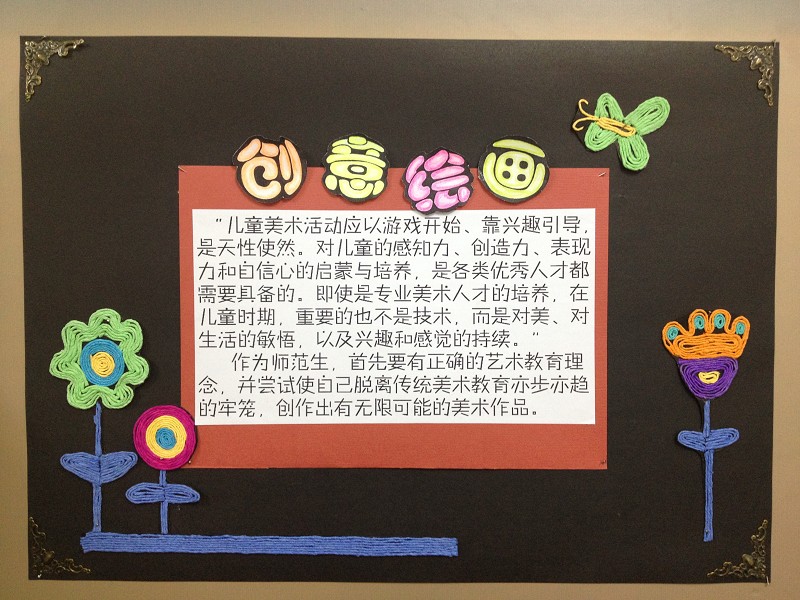 创意绘画
“儿童美术活动应以游戏开始、靠兴趣引导，
是天性使然。对儿童的感知力、创造力、表现
力和自信心的启蒙与培养，是各类优秀人才都
需要具备的。即使是专业美术人才的培养，在
儿童时期，重要的也不是技术，而是对美、对
生活的敏悟，以及兴趣和感觉的持续。”
作为师范生，首先要有正确的艺术教育理
念，并尝试使自己脱离传统美术教育亦步亦趋
的牢笼，创作出有无限可能的美术作品。